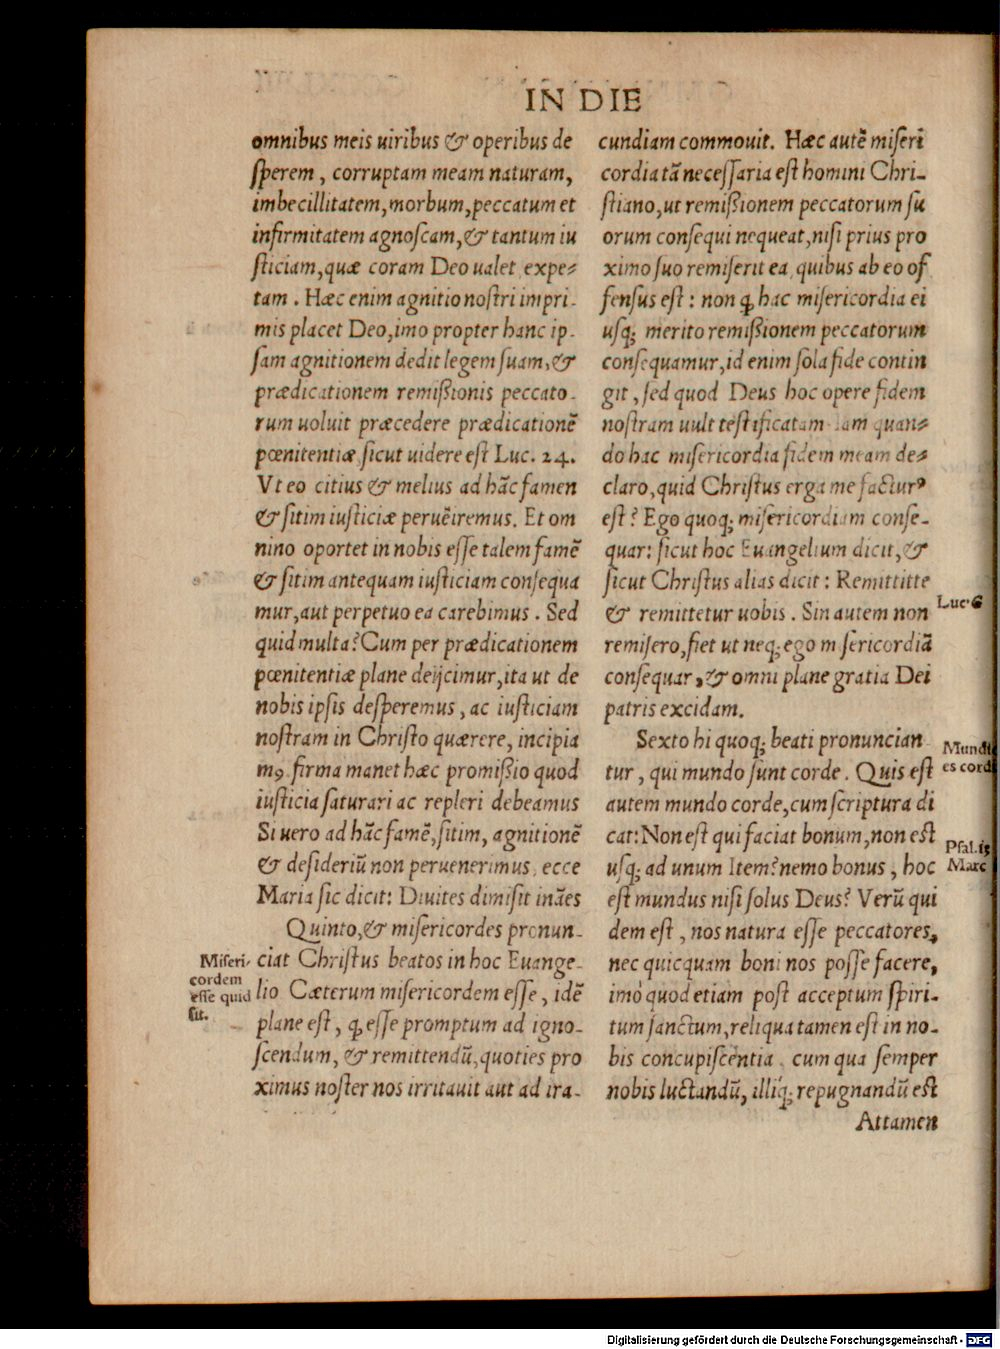 IN DIE
omnibus meis uiribus & operibus de
sperem, corruptam meam naturam,
imbecillitatem, morbum, peccatum et
infirmitatem agnoscam, & tantum iu
sticiam, quæ coram Deo ualet expe-
tam. Hæc enim agnitio nostri impri-
mis placet Deo, imo propter hanc ip-
sam agnitionem dedit legem suam, &
prædicationem remißionis peccato-
rum uoluit præcedere prædicationẽ
pœnitentiæ, sicut uidere est Luc. 24.
Vt eo citius & melius ad hãc famen
& sitim iusticiæ peruẽiremus. Et om
nino oportet in nobis esse talem famẽ
& sitim antequam iusticiam consequa
mur, aut perpetuo ea carebimus. Sed
quid multa? Cum per prædicationem
pœnitentiæ plane deijcimur, ita ut de
nobis ipsis desperemus, ac iusticiam
nostram in Christo quærere, incipia
mꝰ. firma manet hæc promißio quod
iusticia saturari ac repleri debeamus
Si uero ad hãc famẽ, sitim, agnitionẽ
& desideriũ non peruenerimus, ecce
Maria sic dicit: Diuites dimisit inães
Quinto, & misericordes pronun-
ciat Christus beatos in hoc Euange-
lio Cæterum misericordem esse, idẽ
plane est, ꝙ esse promptum ad igno-
scendum, & remittendũ, quoties pro
ximus noster nos irritauit aut ad ira-
Miseri-
cordem
esse quid
sit.
cundiam commouit. Hæc autẽ miseri
cordia tã necessaria est homini Chri-
stiano, ut remißionem peccatorum su
orum consequi nequeat, nisi prius pro
ximo suo remiserit ea, quibus ab eo of
fensus est: non ꝙ hac misericordia ei
usq; merito remißionem peccatorum
consequamur, id enim sola fide contin
git, sed quod Deus hoc opere fidem
nostram uult testificatam. Iam quan-
do hac misericordia fidem meam de-
claro, quid Christus erga me facturꝰ
est? Ego quoq; misericordiam conse-
quar: sicut hoc Euangelium dicit, &
sicut Christus alias dicit: Remittitte
& remittetur uobis. Sin autem non
remisero, fiet ut neq; ego misericordiã
consequar, & omni plane gratia Dei
patris excidam.
Sexto hi quoq; beati pronuncian
tur, qui mundo sunt corde. Quis est
autem mundo corde, cum scriptura di
cat: Non est qui faciat bonum, non est
usq; ad unum Item? nemo bonus, hoc
est mundus nisi solus Deus? Verũ qui
dem est, nos natura esse peccatores,
nec quicquam boni nos posse facere,
imò quod etiam post acceptum spiri-
tum sanctum, reliqua tamen est in no-
bis concupiscentia, cum qua semper
nobis luctandũ, illiq; repugnandũ est
Attamen
Luc. 6
Mundi
es cord
Psal. 13
Marc
Digitalisierung gefördert durch die Deutsche Forschungsgemeinschaft - DFG